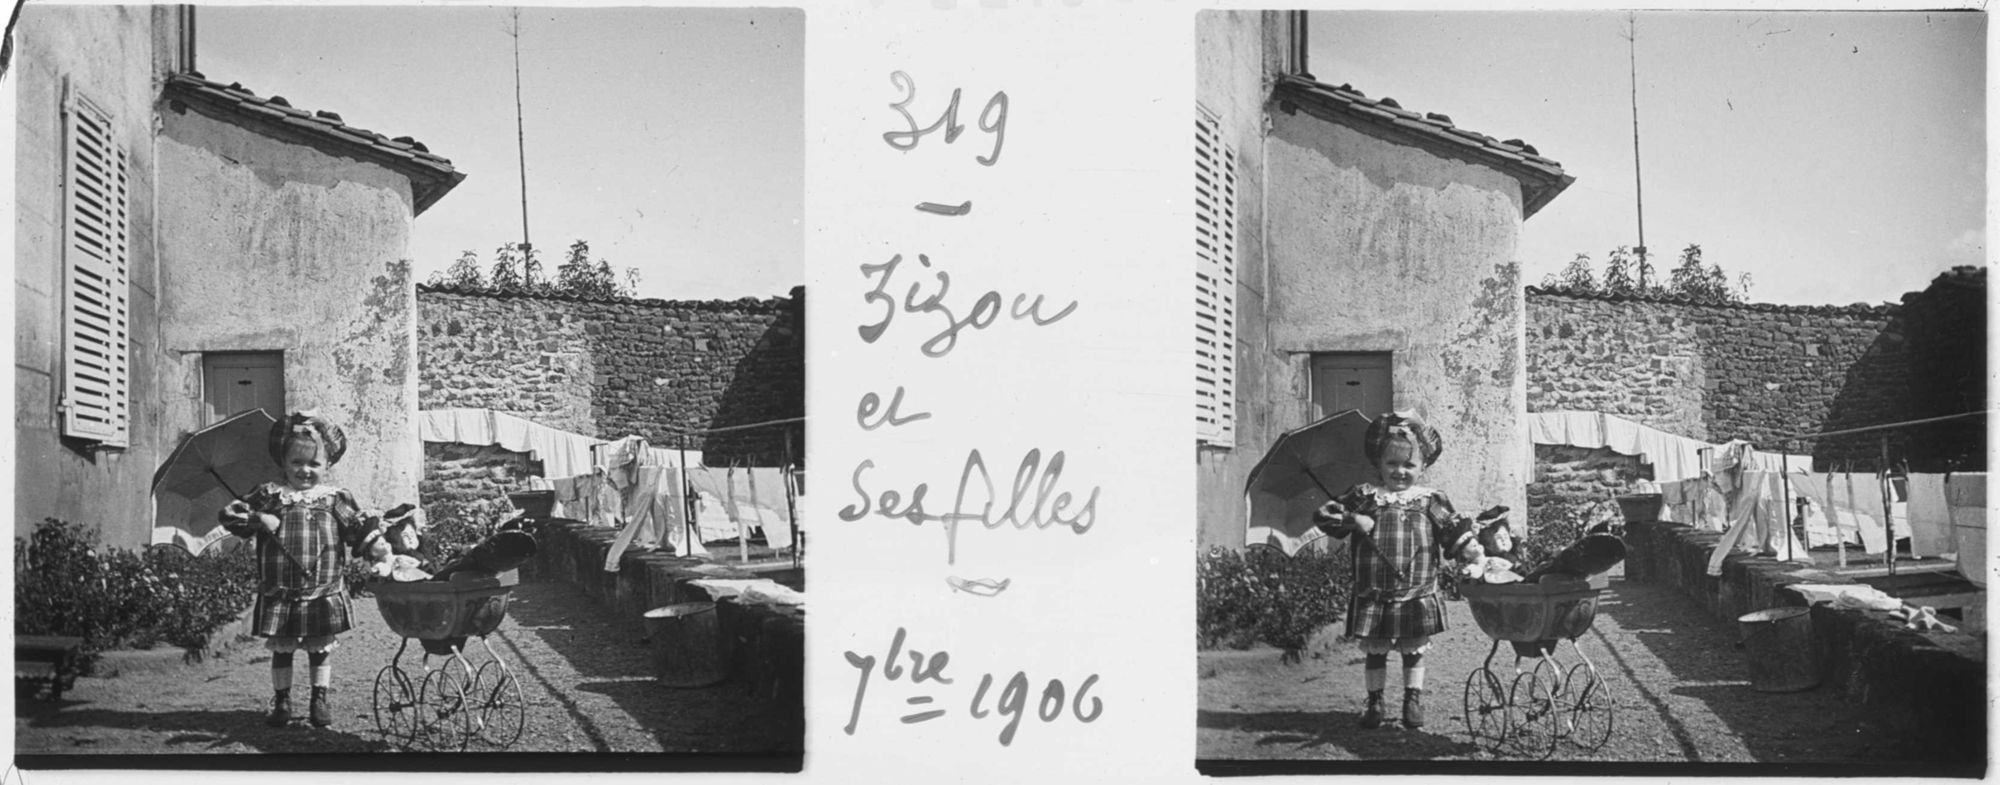 319
-
Zizou
et
ses filles
-
7bre 1906